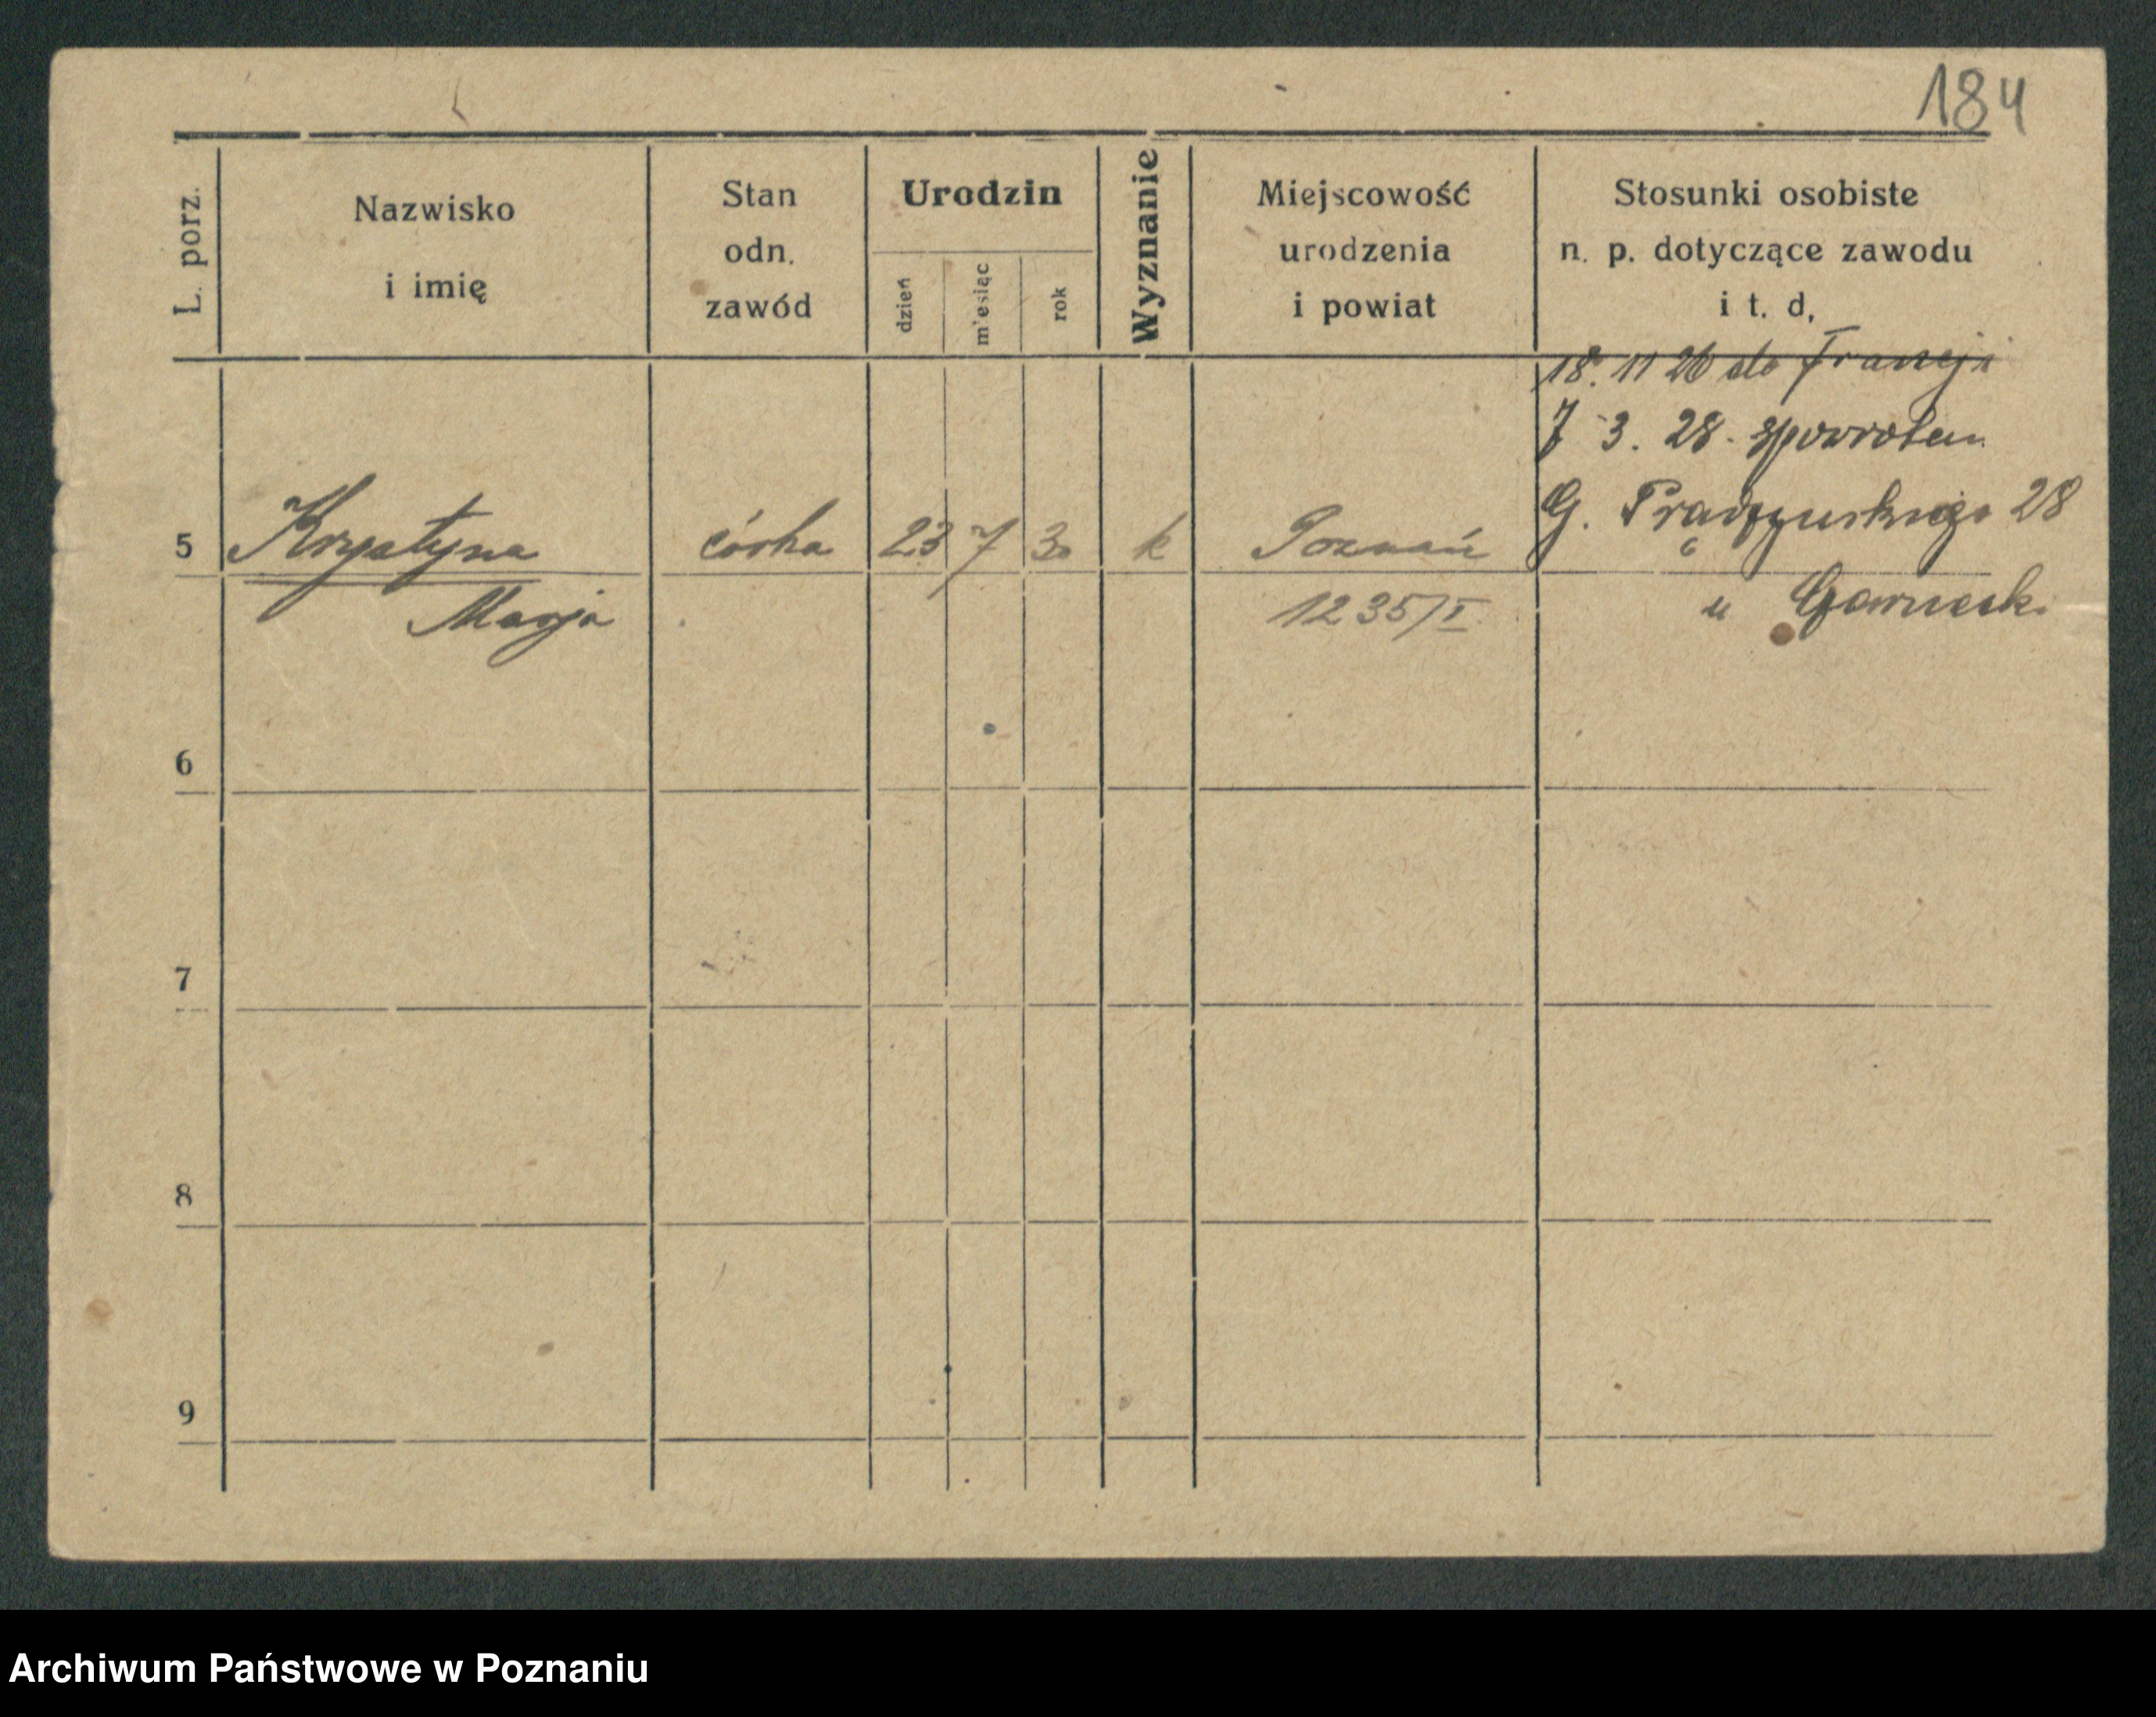 184
L. porz.
Nazwisko
i imię
Stan
odn.
zawód
Urodzin
dzień
m'esiąc
rok
Wyznanie
Miejscowość
urodzenia
i powiat
Stosunki osobiste
n. p. dotyczące zawodu
i t. d,
18. 11 26 do Francji
7 3. 28. spowrotem
G. Prądzyńskiego 28
u
5 Krystyna córka 23 7 30 k Poznań
Marja 1235/I.
6
7
8
9
Archiwum Państwowe w Poznaniu